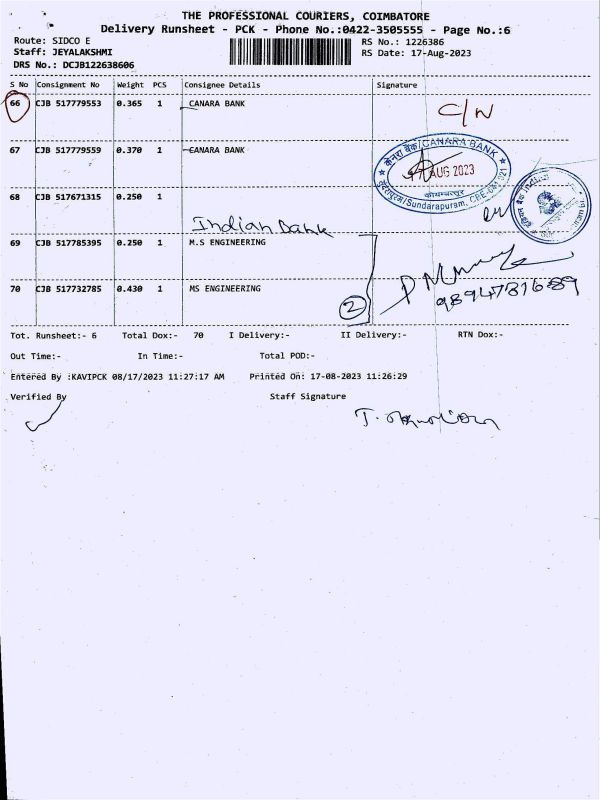 THE PROFESSIONAL COURIERS, COIMBATORE
Delivery Runsheet - PCK - Phone No.:0422-3505555 - Page No.:6
Route: SIDCO E
RS No.: 1226386
Staff: JEYALAKSHMI
RS Date: 17-Aug-2023
DRS No.: DCJB122638606
S No Consignment No Weight PCS Consignee Details Signature
66 CJB 517779553 0.365 1 CANARA BANK C/N
67 CJB 517779559 0.370 1 CANARA BANK
केनरा बैंक/CANARA BANK
AUG 2023
कोयम्बत्तूर
/Sundarapuram, CBE-641 021
68 CJB 517671315 0.250 1
Indian Bank
69 CJB 517785395 0.250 1 M.S ENGINEERING
70 CJB 517732785 0.430 1 MS ENGINEERING
2
9894781689
Tot. Runsheet:- 6 Total Dox:- 70 I Delivery:- II Delivery:- RTN Dox:-
Out Time:- In Time:- Total POD:-
Entered By :KAVIPCK 08/17/2023 11:27:17 AM Printed On: 17-08-2023 11:26:29
Verified By Staff Signature